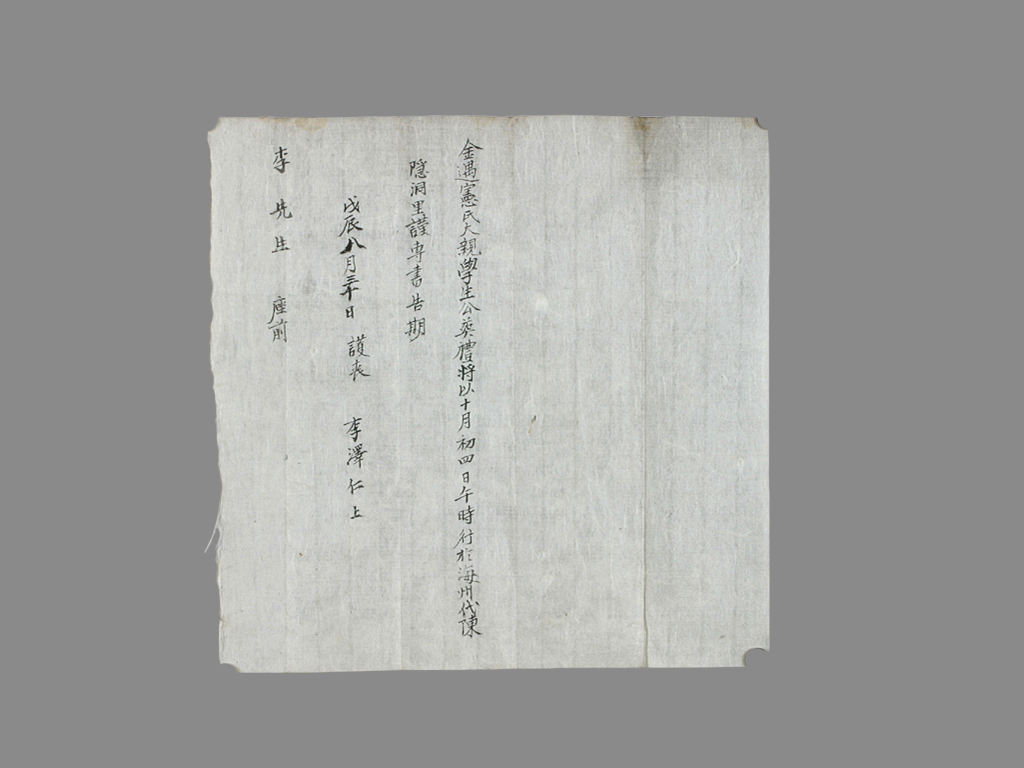 金遇憲氏大親學生公葬禮將以十月初四日午時行於海州代陳
隱洞里謹專書告期
戊辰八月三十日 護喪 李澤仁上
李先生 座前